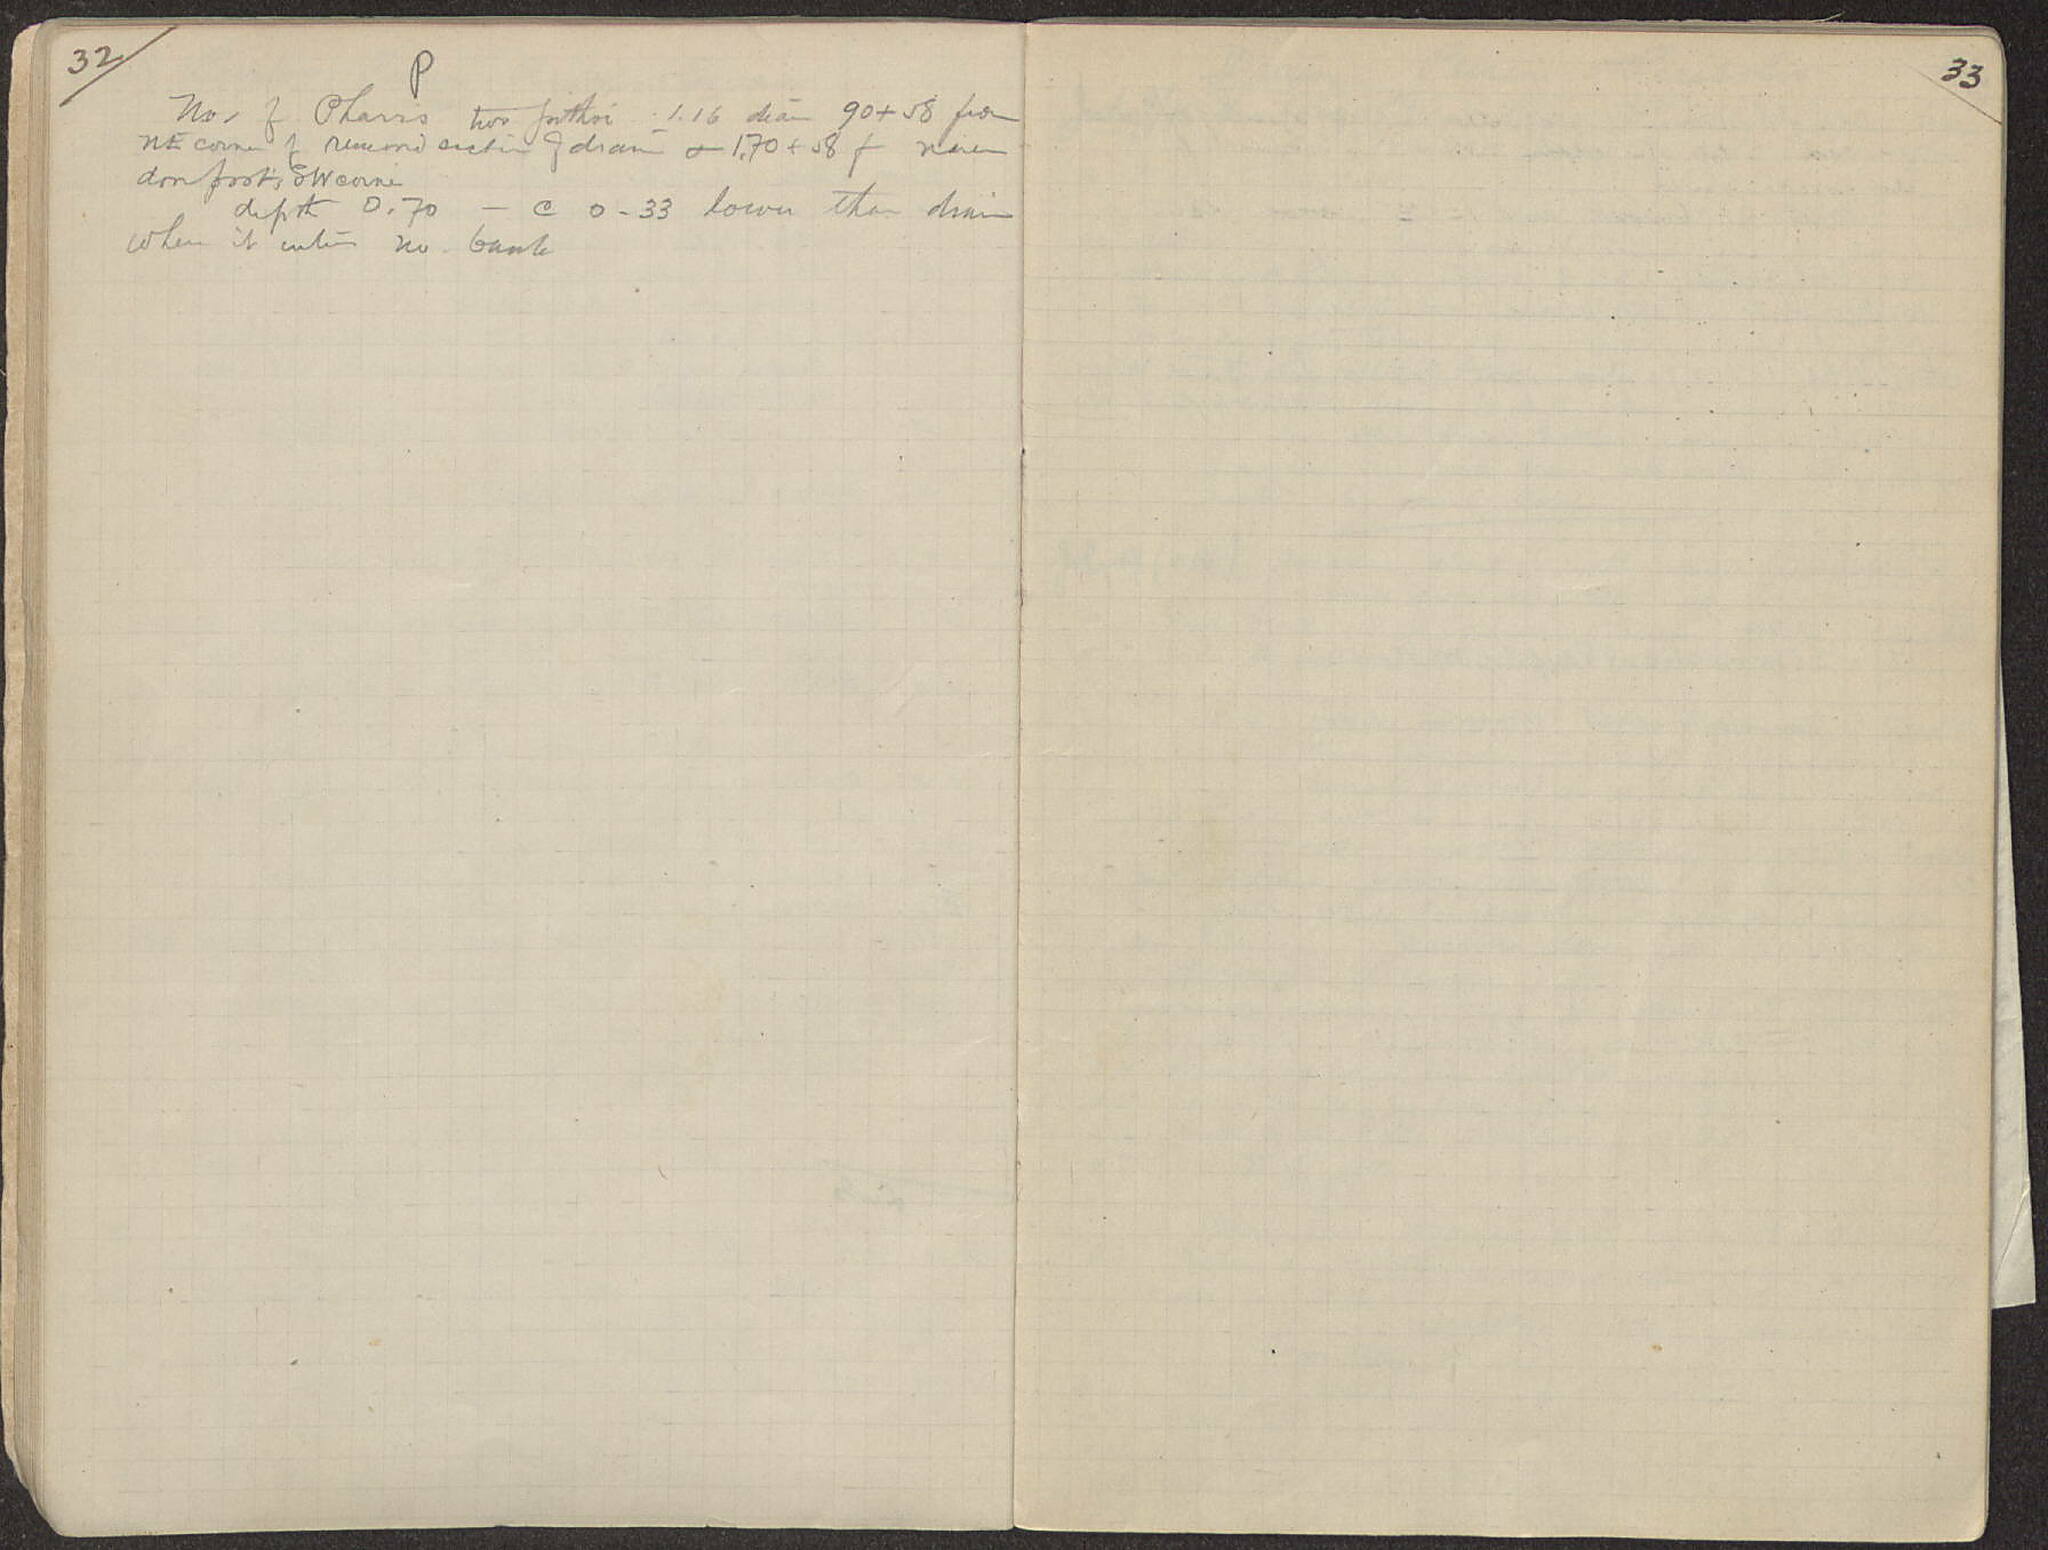 32
P
No. of Pharsis two pithoi 1.16 diam 90 + 58 from
NE corner of removed section of drain & 1.70 + 58 f
door post's SW corner
depth 0.70 — c 0-33 lower than drain
where it enters no. bank
33